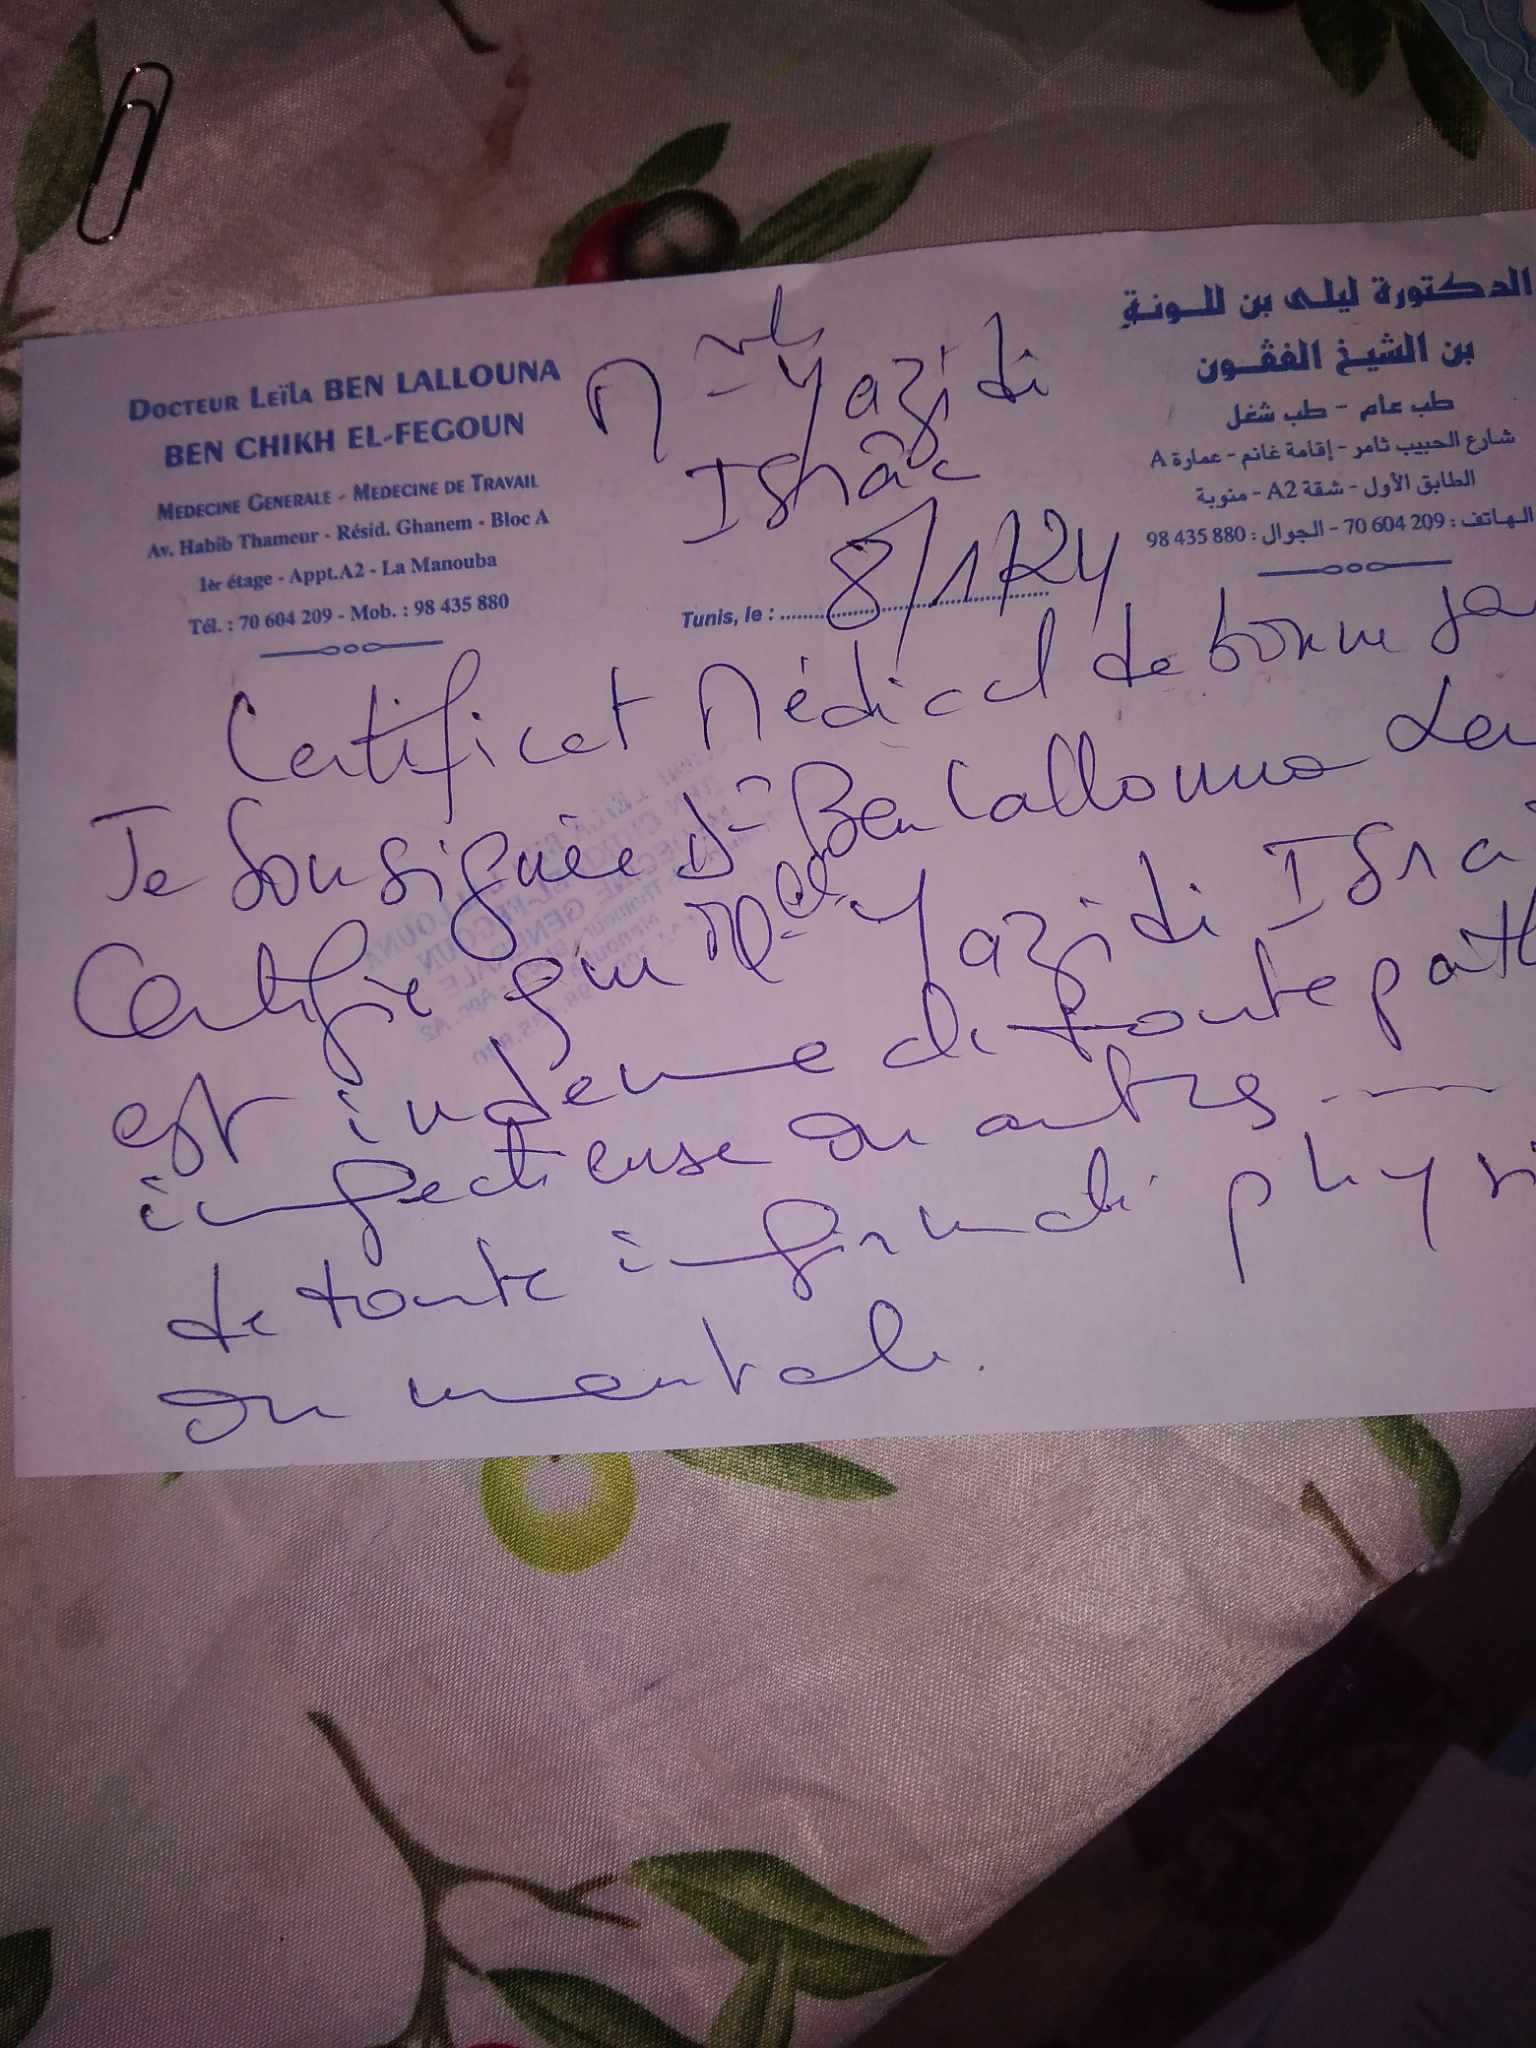 DOCTEUR LEÏLA BEN LALLOUNA
BEN CHIKH EL-FEGOUN
MEDECINE GENERALE - MEDECINE DE TRAVAIL
Av. Habib Thameur - Résid. Ghanem - Bloc A
1èr étage - Appt.A2 - La Manouba
Tél. : 70 604 209 - Mob. : 98 435 880
الدكتورة ليلى بن للونة
بن الشيخ الفڨون
طب عام - طب شغل
شارع الحبيب ثامر - إقامة غانم - عمارة A
الطابق الأول - شقة A2 - منوبة
الهاتف : 209 604 70 - الجوال : 880 435 98
Mlle Yazidi
Israe
Tunis, le : 8/1/24
Certificat Médical de bonne sa
Je soussignée Dr Ben Lallouna Lei
Certifie que Mlle Yazidi Isra
est indemne de toute path
infectieuse ou autres
de toute infirmité physi
ou mentale.